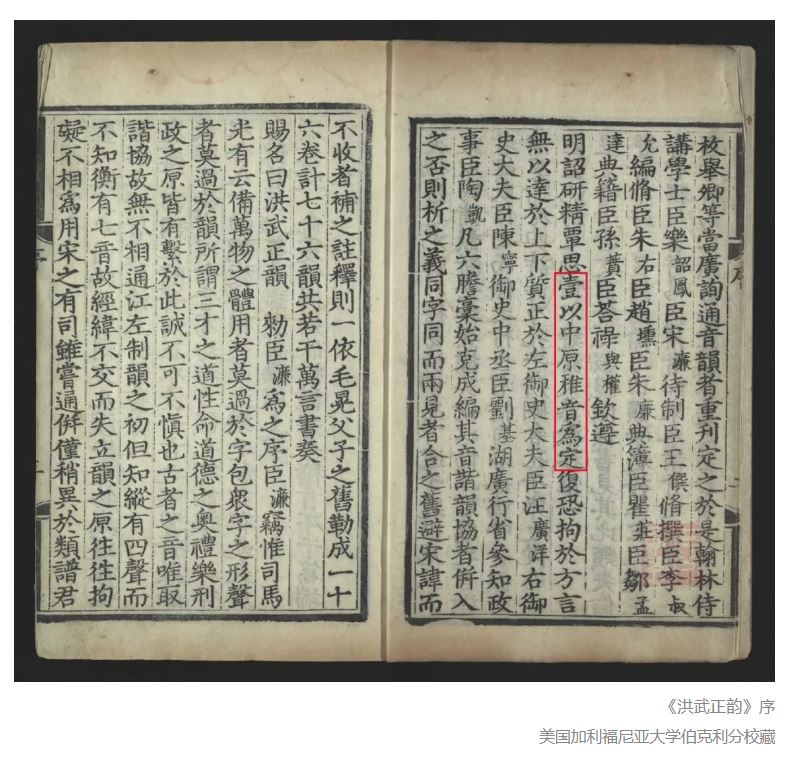 枚舉卿等當廣詢通音韻者重刊定之於是翰林侍
講學士臣樂韶鳳臣宋濂待制臣王僎脩撰臣李叔
允編脩臣朱右臣趙壎臣朱廉典簿臣瞿莊臣鄒孟
達典籍臣孫蕡臣荅祿與權欽遵
明詔研精覃思壹以中原雅音爲定復恐拘於方言
無以達於上下質正於左御史大夫臣汪廣洋右御
史大夫臣陳寧御史中丞臣劉基湖廣行省參知政
事臣陶凱凡六謄稾始克成編其音諧韻協者併入
之否則析之義同字同而兩見者合之舊避宋諱而
不收者補之註釋則一依毛晃父子之舊勒成一十
六卷計七十六韻共若干萬言書奏
賜名曰洪武正韻 勑臣濂爲之序臣濂竊惟司馬
光有云備萬物之體用者莫過於字包衆字之形聲
者莫過於韻所謂三才之道性命道德之奧禮樂刑
政之原皆有繫於此誠不可不慎也古者之音唯取
諧協故無不相通江左制韻之初但知縱有四聲而
不知衡有七音故經緯不交而失立韻之原往往拘
礙不相爲用宋之有司雖嘗通併僅稍異於類譜君
《洪武正韵》序
美国加利福尼亚大学伯克利分校藏